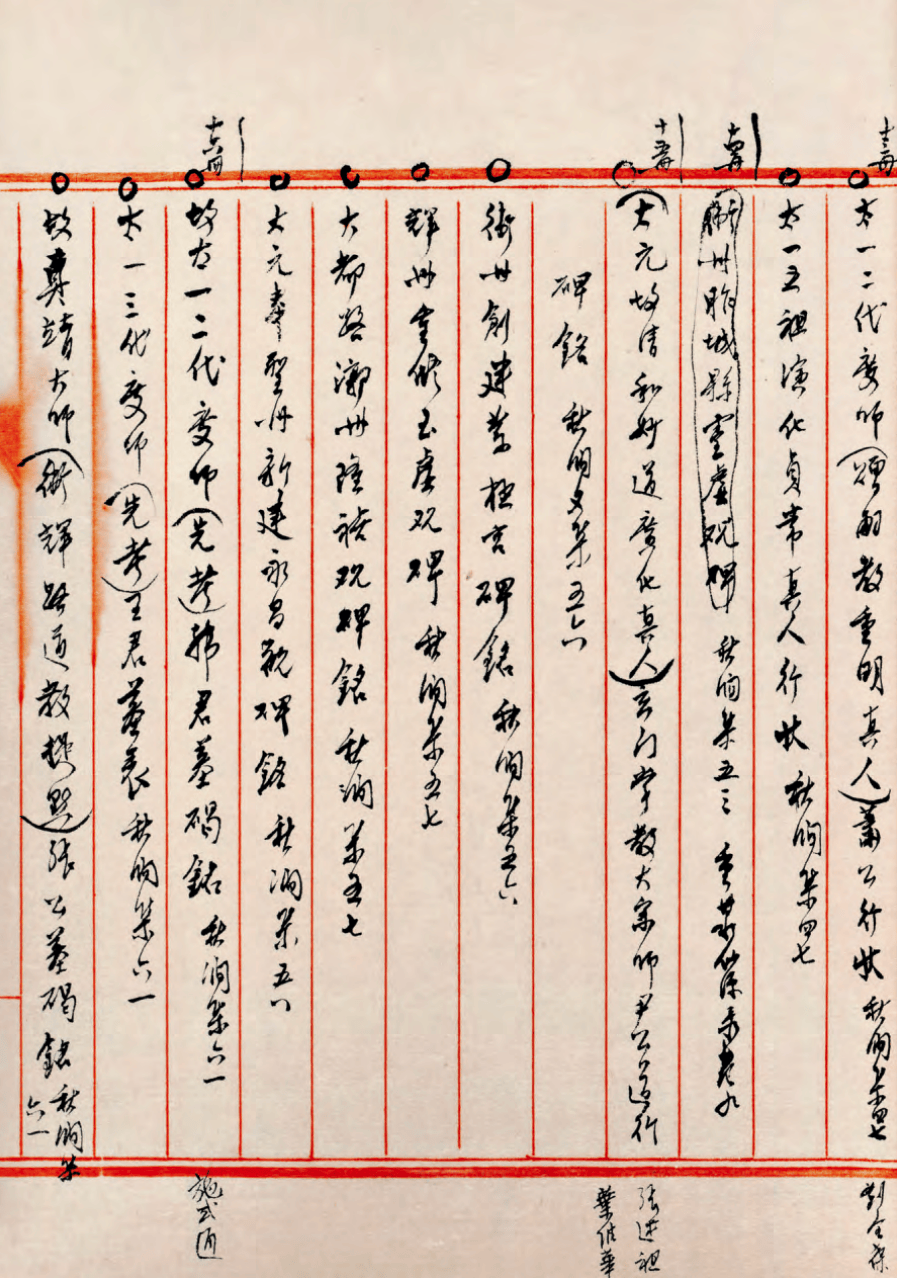 十三冊
太一二代度師（嗣教重明真人）蕭公行狀 秋澗集四七
劉全葆
太一五祖演化貞常真人行狀 秋澗集四七
十四冊
衛州胙城縣靈虛觀碑 秋澗集五三
十五冊
（大元故清和妙道廣化真人）玄門掌教大宗師尹公道行
碑銘 秋澗文集五六
張進祖
葉
衛州創建紫極宮碑銘 秋澗集五六
輝州重修玉虛觀碑 秋澗集五七
大都路漷州隆禧觀碑銘 秋澗集五七
大元奉聖州新建永昌觀碑銘 秋澗集五八
十六冊
故太一二代度師（先考）韓君墓碣銘 秋澗集六一
施式
太一三代度師（先考）王君墓表 秋澗集六一
故真靖大師（衛輝路道教提點）張公墓碣銘 秋澗集六一